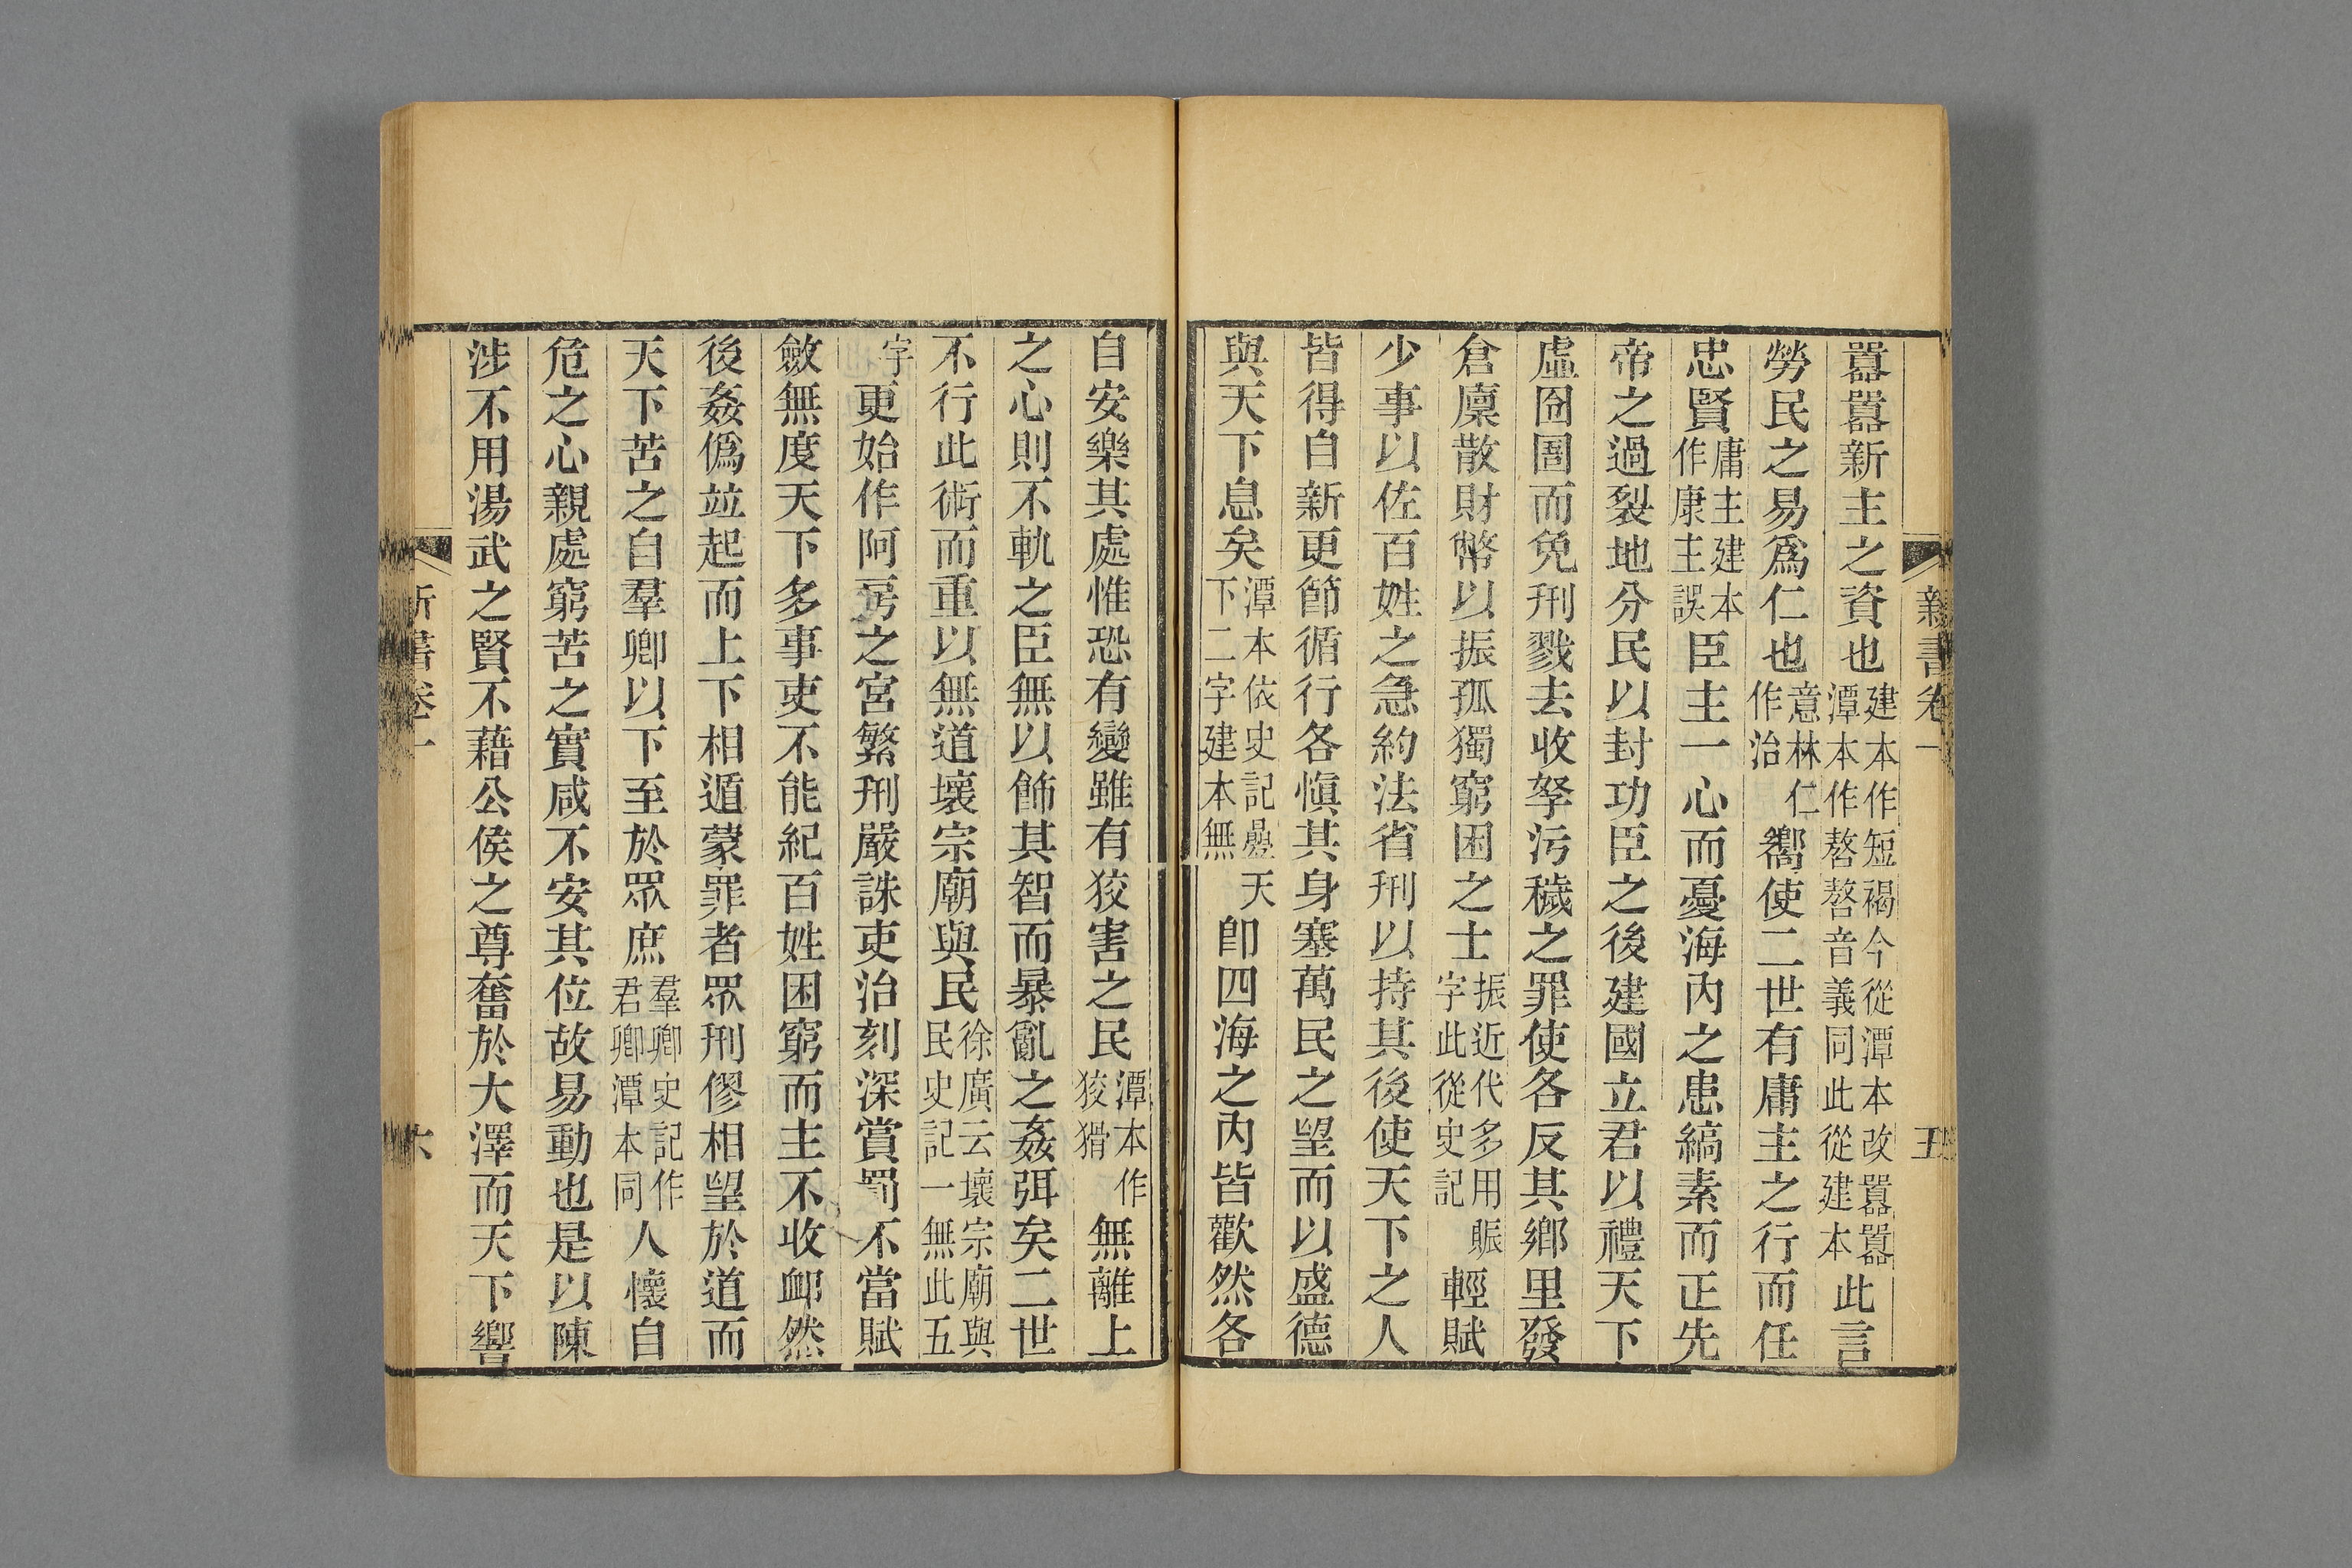 新書卷一
五
囂囂新主之資也建本作短褐今從潭本改囂囂潭本作嗸嗸音義同此從建本此言
勞民之易爲仁也意林仁作治嚮使二世有庸主之行而任
忠賢庸主建本作康主誤臣主一心而憂海內之患縞素而正先
帝之過裂地分民以封功臣之後建國立君以禮天下
虛囹圄而免刑戮去收孥污穢之罪使各反其鄉里發
倉廩散財幣以振孤獨窮困之士振近代多用賑字此從史記輕賦
少事以佐百姓之急約法省刑以持其後使天下之人
皆得自新更節循行各愼其身塞萬民之望而以盛德
與天下息矣潭本依史記疊天下二字建本無卽四海之內皆歡然各
自安樂其處惟恐有變雖有狡害之民潭本作狡猾無離上
之心則不軌之臣無以飾其智而暴亂之姦弭矣二世
不行此術而重以無道壞宗廟與民徐廣云壞宗廟與民史記一無此五
字更始作阿房之宮繁刑嚴誅吏治刻深賞罰不當賦
斂無度天下多事吏不能紀百姓困窮而主不收卹然
後姦僞竝起而上下相遁蒙罪者眾刑僇相望於道而
天下苦之自羣卿以下至於眾庶羣卿史記作君卿潭本同人懷自
危之心親處窮苦之實咸不安其位故易動也是以陳
涉不用湯武之賢不藉公侯之尊奮於大澤而天下響
新書卷一
六